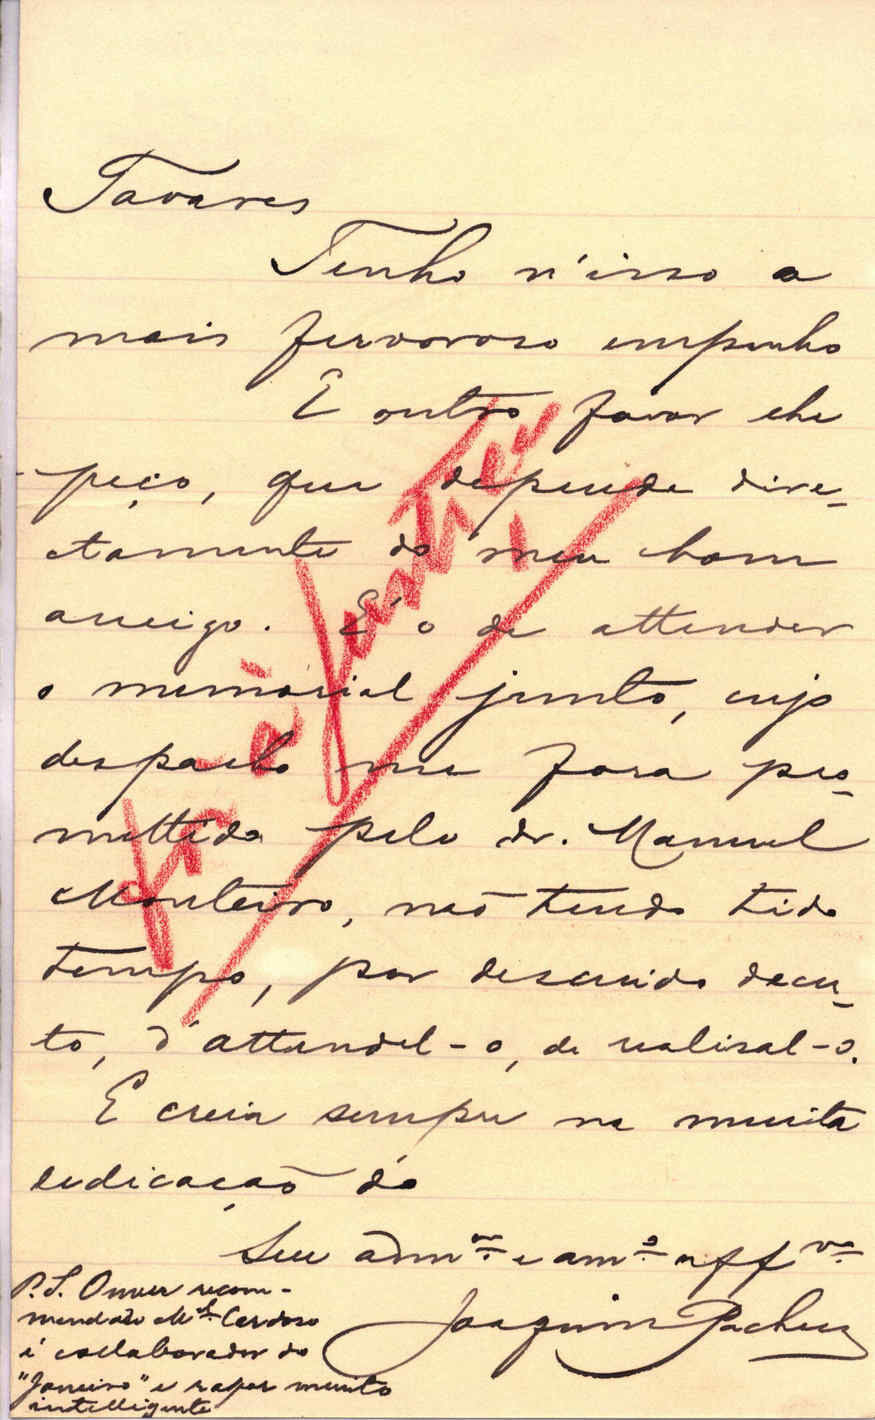 Tavares
Tenho n'isso o
mais fervoroso empenho
E outro favor lhe
peço, que depende dire-
ctamente do meu bom
amigo. É o de attender
o memorial junto, cujo
despacho me fora pro-
mettido pelo dr. Manuel
Monteiro, não tendo tido
tempo, por descuido decer-
to, d'attendel-o, de realisal-o.
E creia sempre na muita
dedicação do
Seu adm.or e am.o aff.vo
Joaquim Pacheco
P.S. O meu recom-
mendado M.el Cardoso
é collaborador do
"Janeiro" e rapaz muito
intelligente
à Justiça